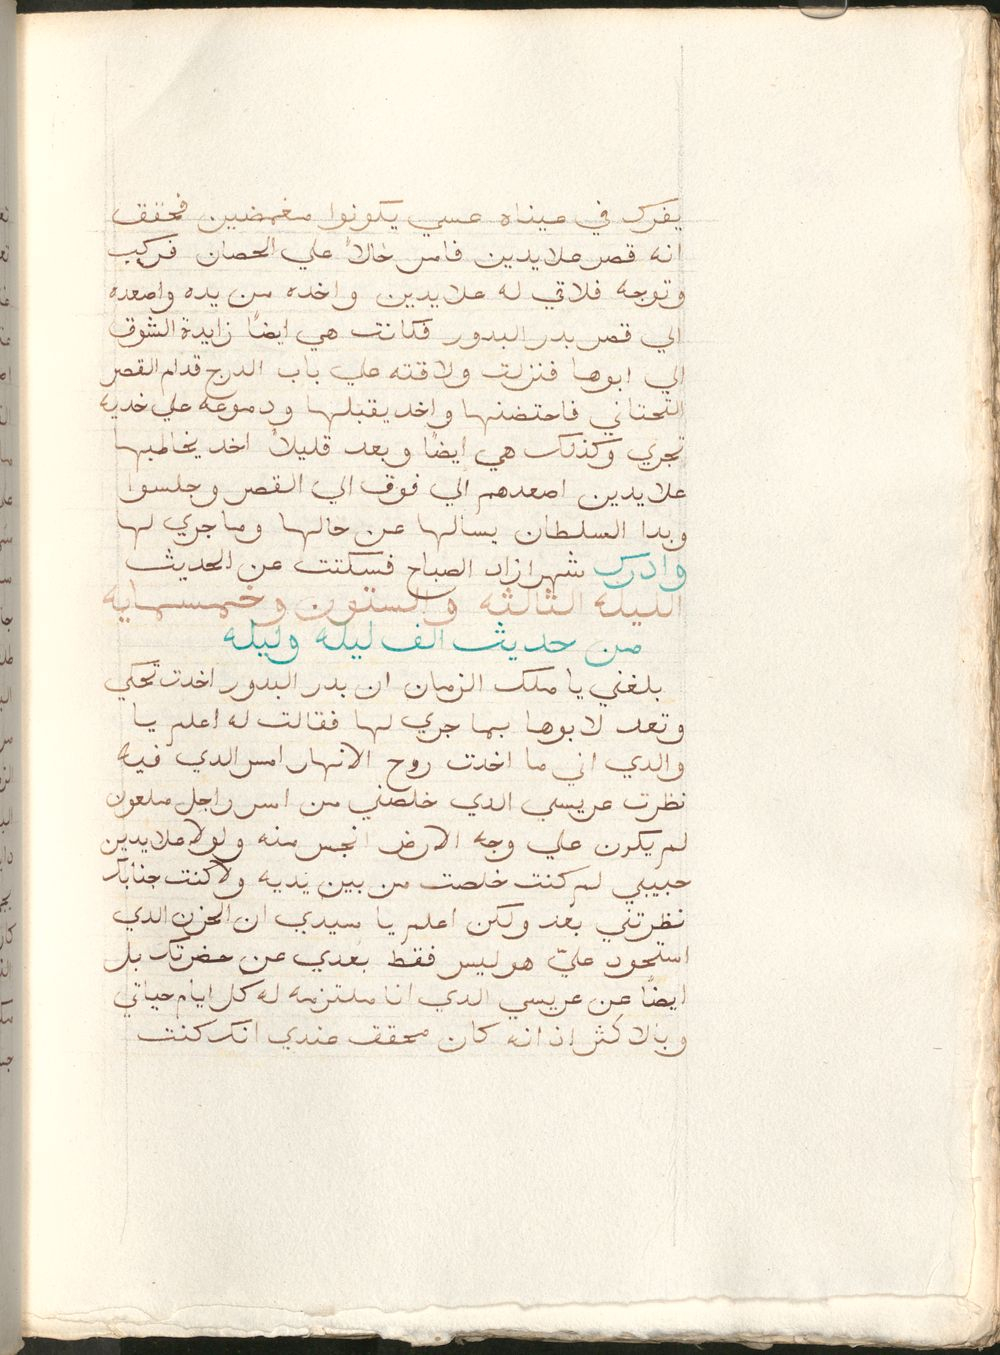 يفرك في عيناه عسي يكونوا مغمضين فحقق
انه قصر علايدين فامر حالاً علي الحصان فركب
وتوجه فلاقي له علايدين واخده من يده واصعده
الي قصر بدر البدور فكانت هي ايضاً زايدة الشوق
الي ابوها فنزلت ولاقته علي باب الدرج قدام القصر
التحتاني فاحتضنها واخد يقبلها ودموعه علي خديه
تجري وكذلك هي ايضاً وبعد قليلاً اخد يخاطبها
علايدين اصعدهم الي فوق الي القصر وجلسوا
وبدا السلطان يسالها عن حالها وما جري لها
وادرك شهرازاد الصباح فسكتت عن الحديث
الليلة الثالثه والستون وخمسمايه
من حديث الف ليله وليله
بلغني يا ملك الزمان ان بدر البدور اخدت تحكي
وتعد لابوها بما جري لها فقالت له اعلم يا
والدي اني ما اخدت روح الا نهار امس الدي فيه
نظرت عريسي الدي خلصني من اسر راجل ملعون
لم يكون علي وجه الارض انجس منه ولولا علايدين
حبيبي لم كنت خلصت من بين يديه ولا كنت جنابك
نظرتني بعد ولكن اعلم يا سيدي ان الحزن الدي
استحود عليّ هو ليس فقط بعدي عن حضرتك بل
ايضاً عن عريسي الدي انا ملتزمه له كل ايام حياتي
وبالاكثر اذ انه كان محقق عندي انك كنت